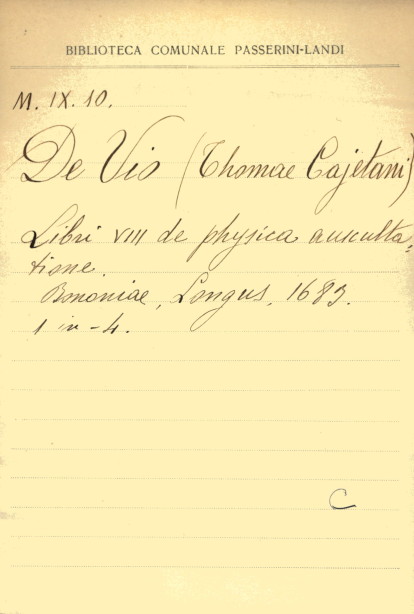 BIBLIOTECA COMUNALE PASSERINI-LANDI
M. IX. 10.
De Vio (Thomae Cajetani)
Libri VIII de physica ausculta=
tione.
Bononiae, Longus, 1683.
1 in-4.
C